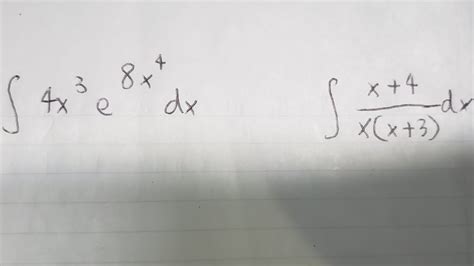 ∫ 4x³ e^{8x⁴} dx
∫ \frac{x+4}{x(x+3)} dx